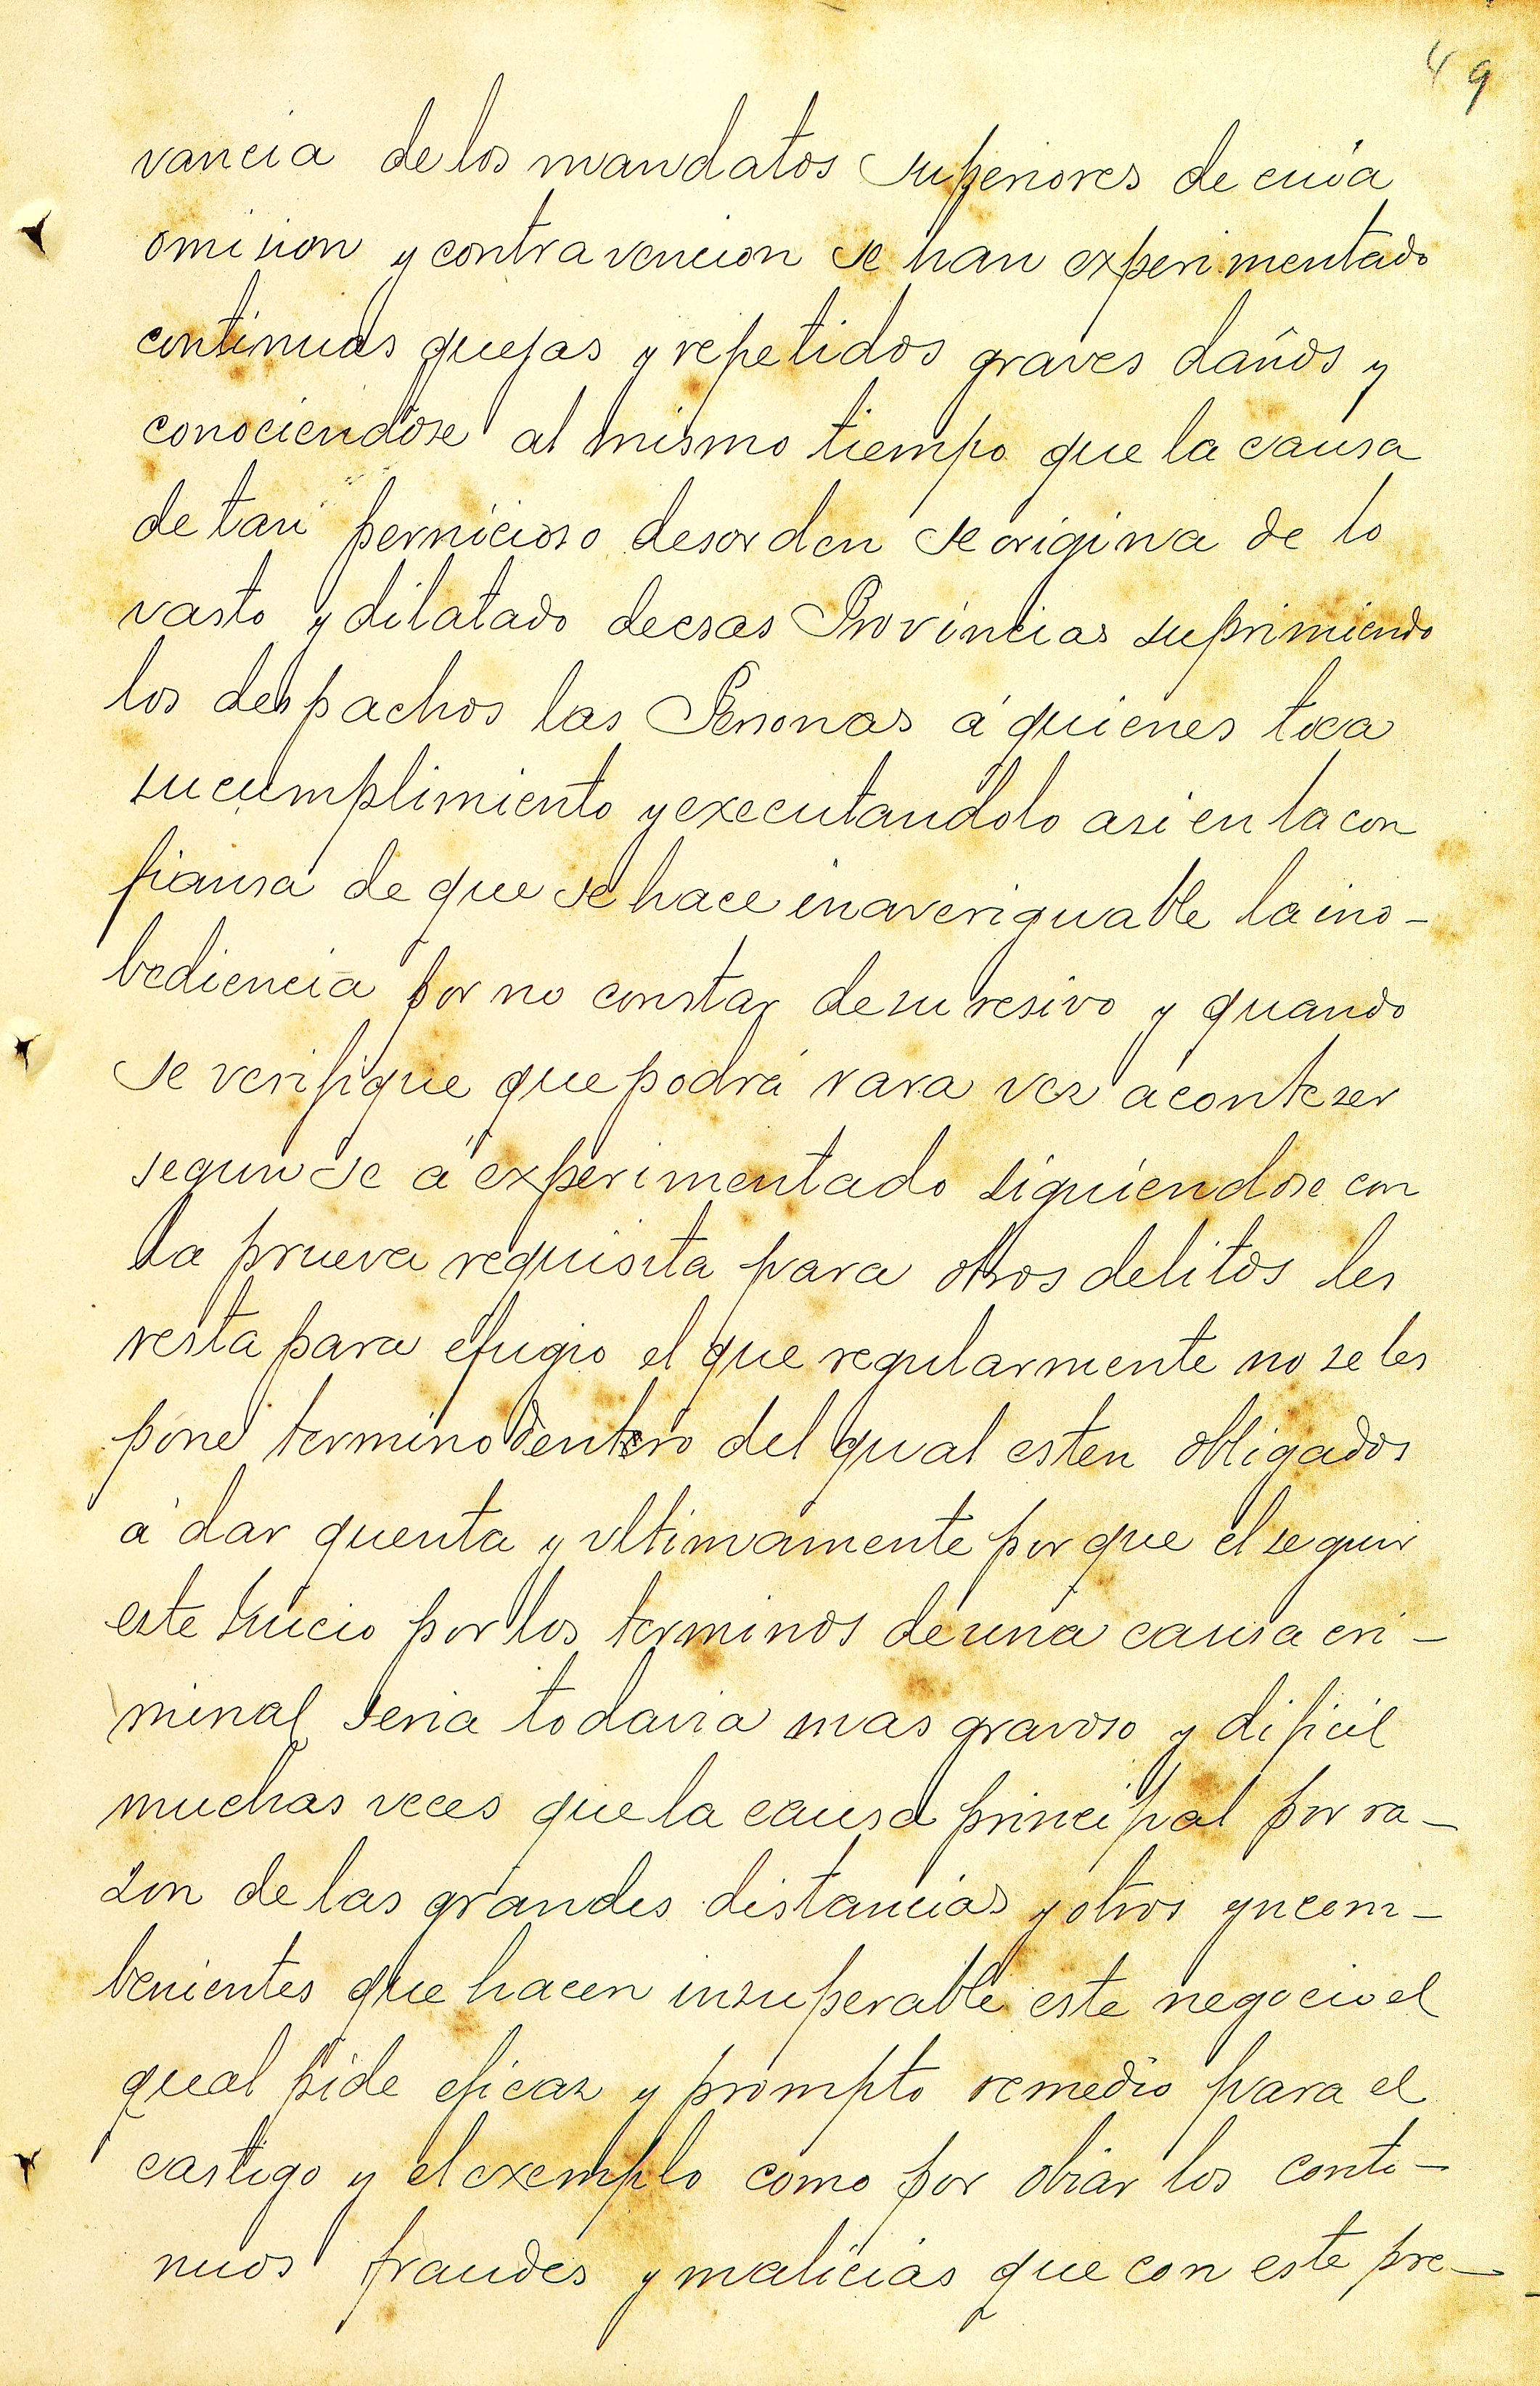 49
vancia de los mandatos superiores de cuia
omision y contravencion se han experimentado
continuas quejas y repetidos graves daños y
conociendose al mismo tiempo que la causa
de tan pernicioso desorden se origina de lo
vasto y dilatado de esas Provincias suprimiendo
los despachos las Personas á quienes toca
su cumplimiento y executandolo asi en la con
fiansa de que se hace inaveriguable la ino-
bediencia por no constar de su resivo y quando
se verifique que podrá rara vez acontezer
segun se á experimentado siguiendose con
la prueva requisita para otros delitos les
resta para efugio el que regularmente no se les
pone termino dentro del qual esten obligados
á dar quenta y ultimamente por que el seguir
este Juicio por los terminos de una causa cri-
minal seria todavia mas gravoso y dificil
muchas veces que la causa principal por ra-
zon de las grandes distancias y otros yncom-
benientes que hacen insuperable este negocio el
qual pide eficaz y prompto remedio para el
castigo y el exemplo como por obiar los conti-
nuos fraudes y malicias que con este pre-